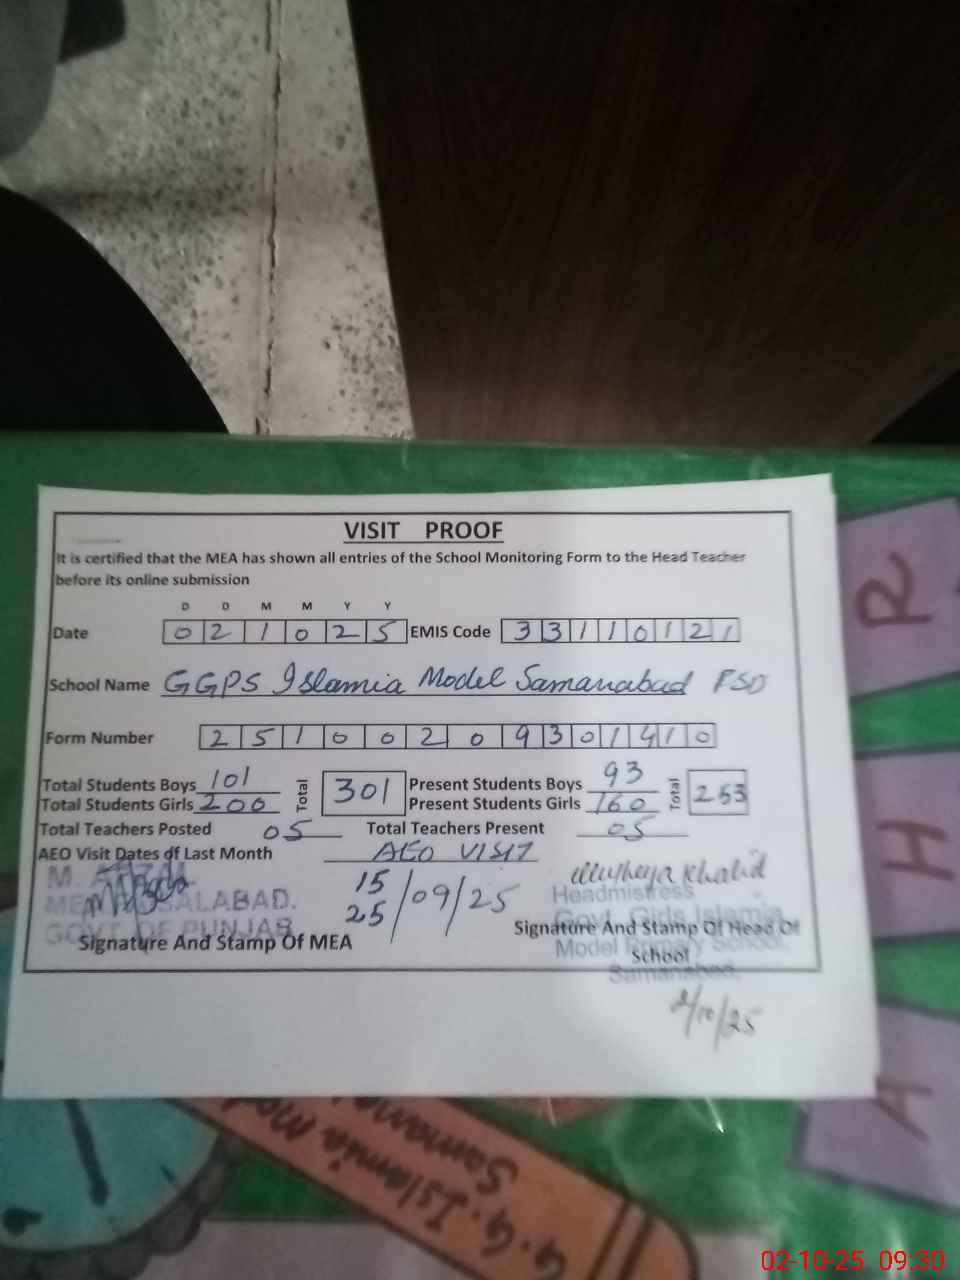 VISIT PROOF
It is certified that the MEA has shown all entries of the School Monitoring Form to the Head Teacher
before its online submission
D D M M Y Y
Date 0 2 1 0 2 5 EMIS Code 3 3 1 1 0 1 2 1
School Name GGPS Islamia Model Samanabad FSD
Form Number 2 5 1 0 0 2 0 9 3 0 1 4 1 0
Total Students Boys 101 Total 301 Present Students Boys 93 Total 253
Total Students Girls 200 Present Students Girls 160
Total Teachers Posted 05 Total Teachers Present 05
AEO Visit Dates of Last Month AEO VISIT
15
25 /09/25
M. AFZAL
MEA FAISALABAD.
GOVT. OF PUNJAB
Signature And Stamp Of MEA
Khalid
Headmistress
Govt. Girls Islamia
Signature And Stamp Of Head Of
Model Primary School,
School
Samanabad,
2/10/25
R
H
A
G.G. Islamia Mod
Samana
02-10-25 09:30